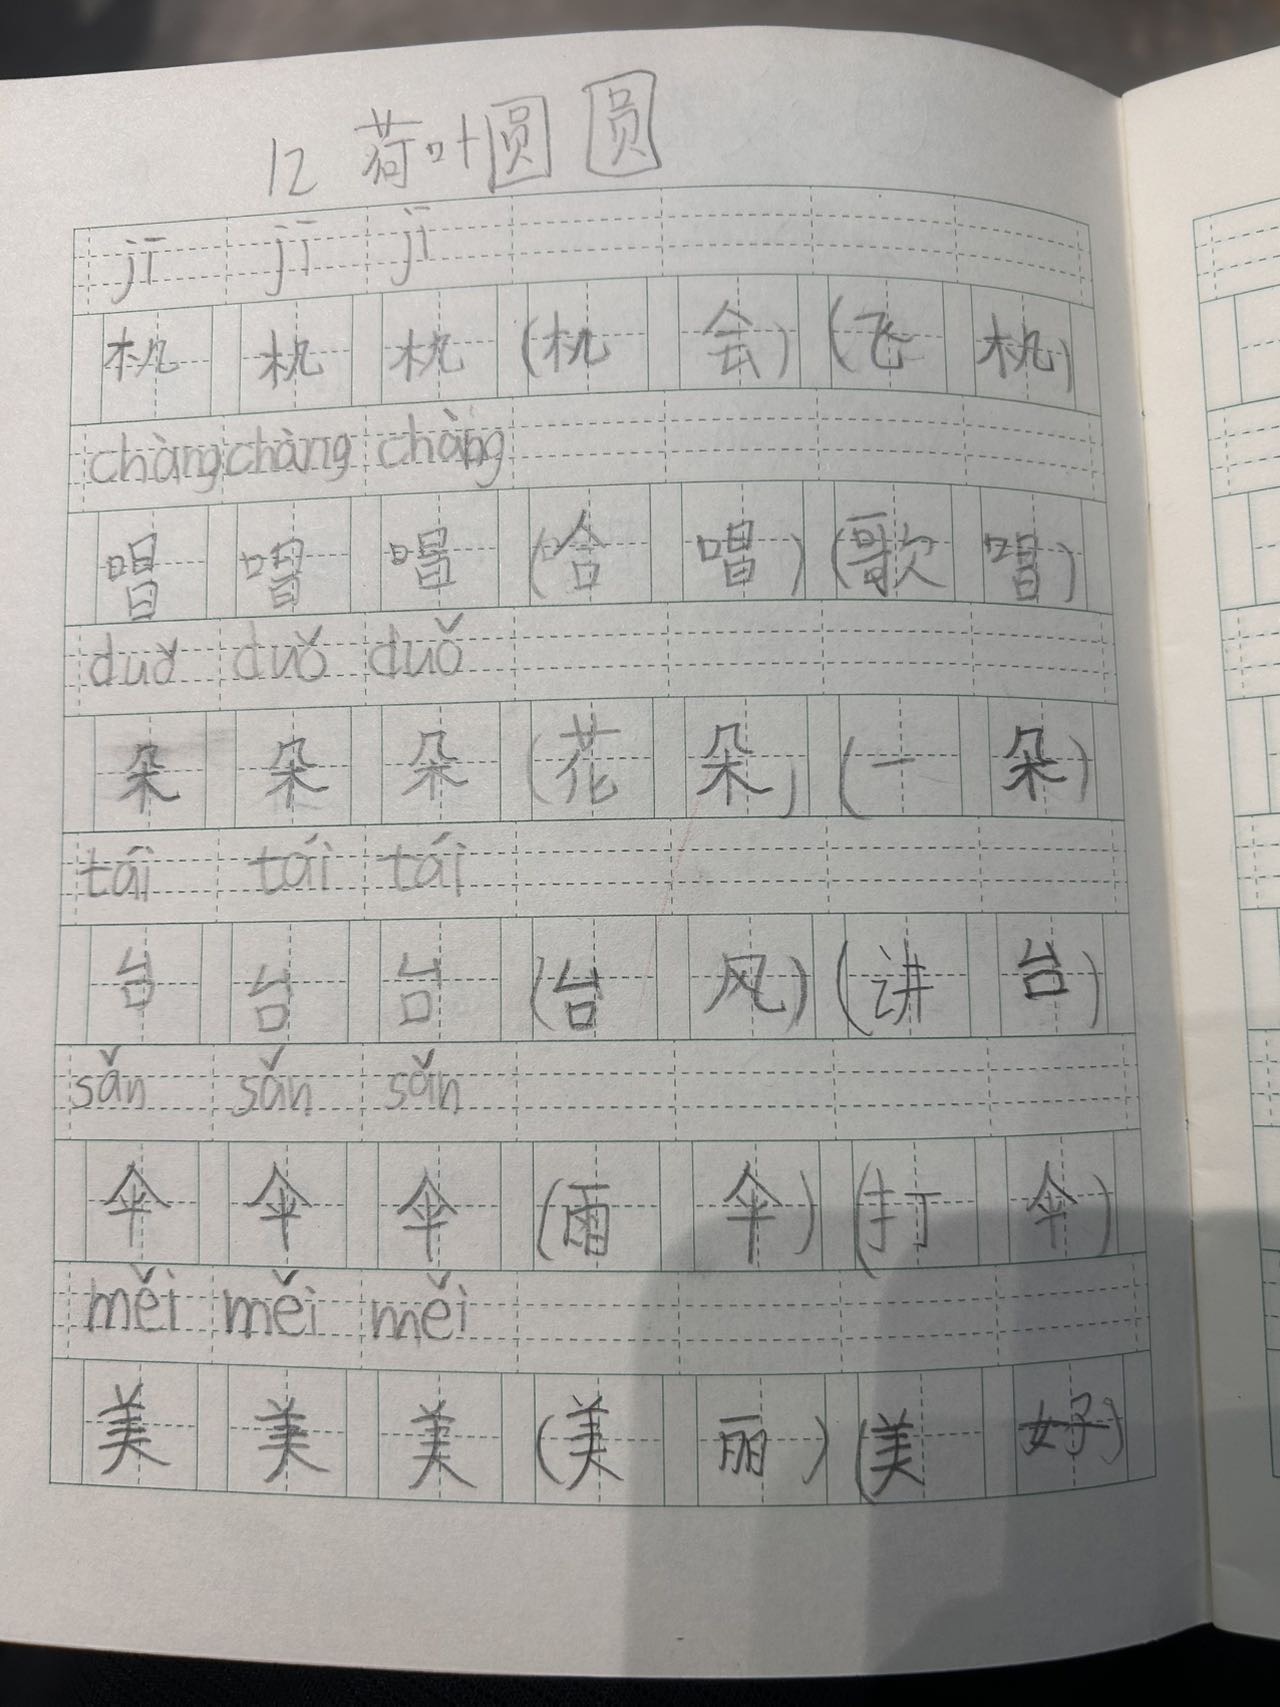 12 荷叶圆圆
jī jī jī
机 机 机 (机 会) (飞 机)
chàng chàng chàng
唱 唱 唱 (合 唱) (歌 唱)
duǒ duǒ duǒ
朵 朵 朵 (花 朵) (一 朵)
tái tái tái
台 台 台 (台 风) (讲 台)
sǎn sǎn sǎn
伞 伞 伞 (雨 伞) (打 伞)
měi měi měi
美 美 美 (美 丽) (美 好)